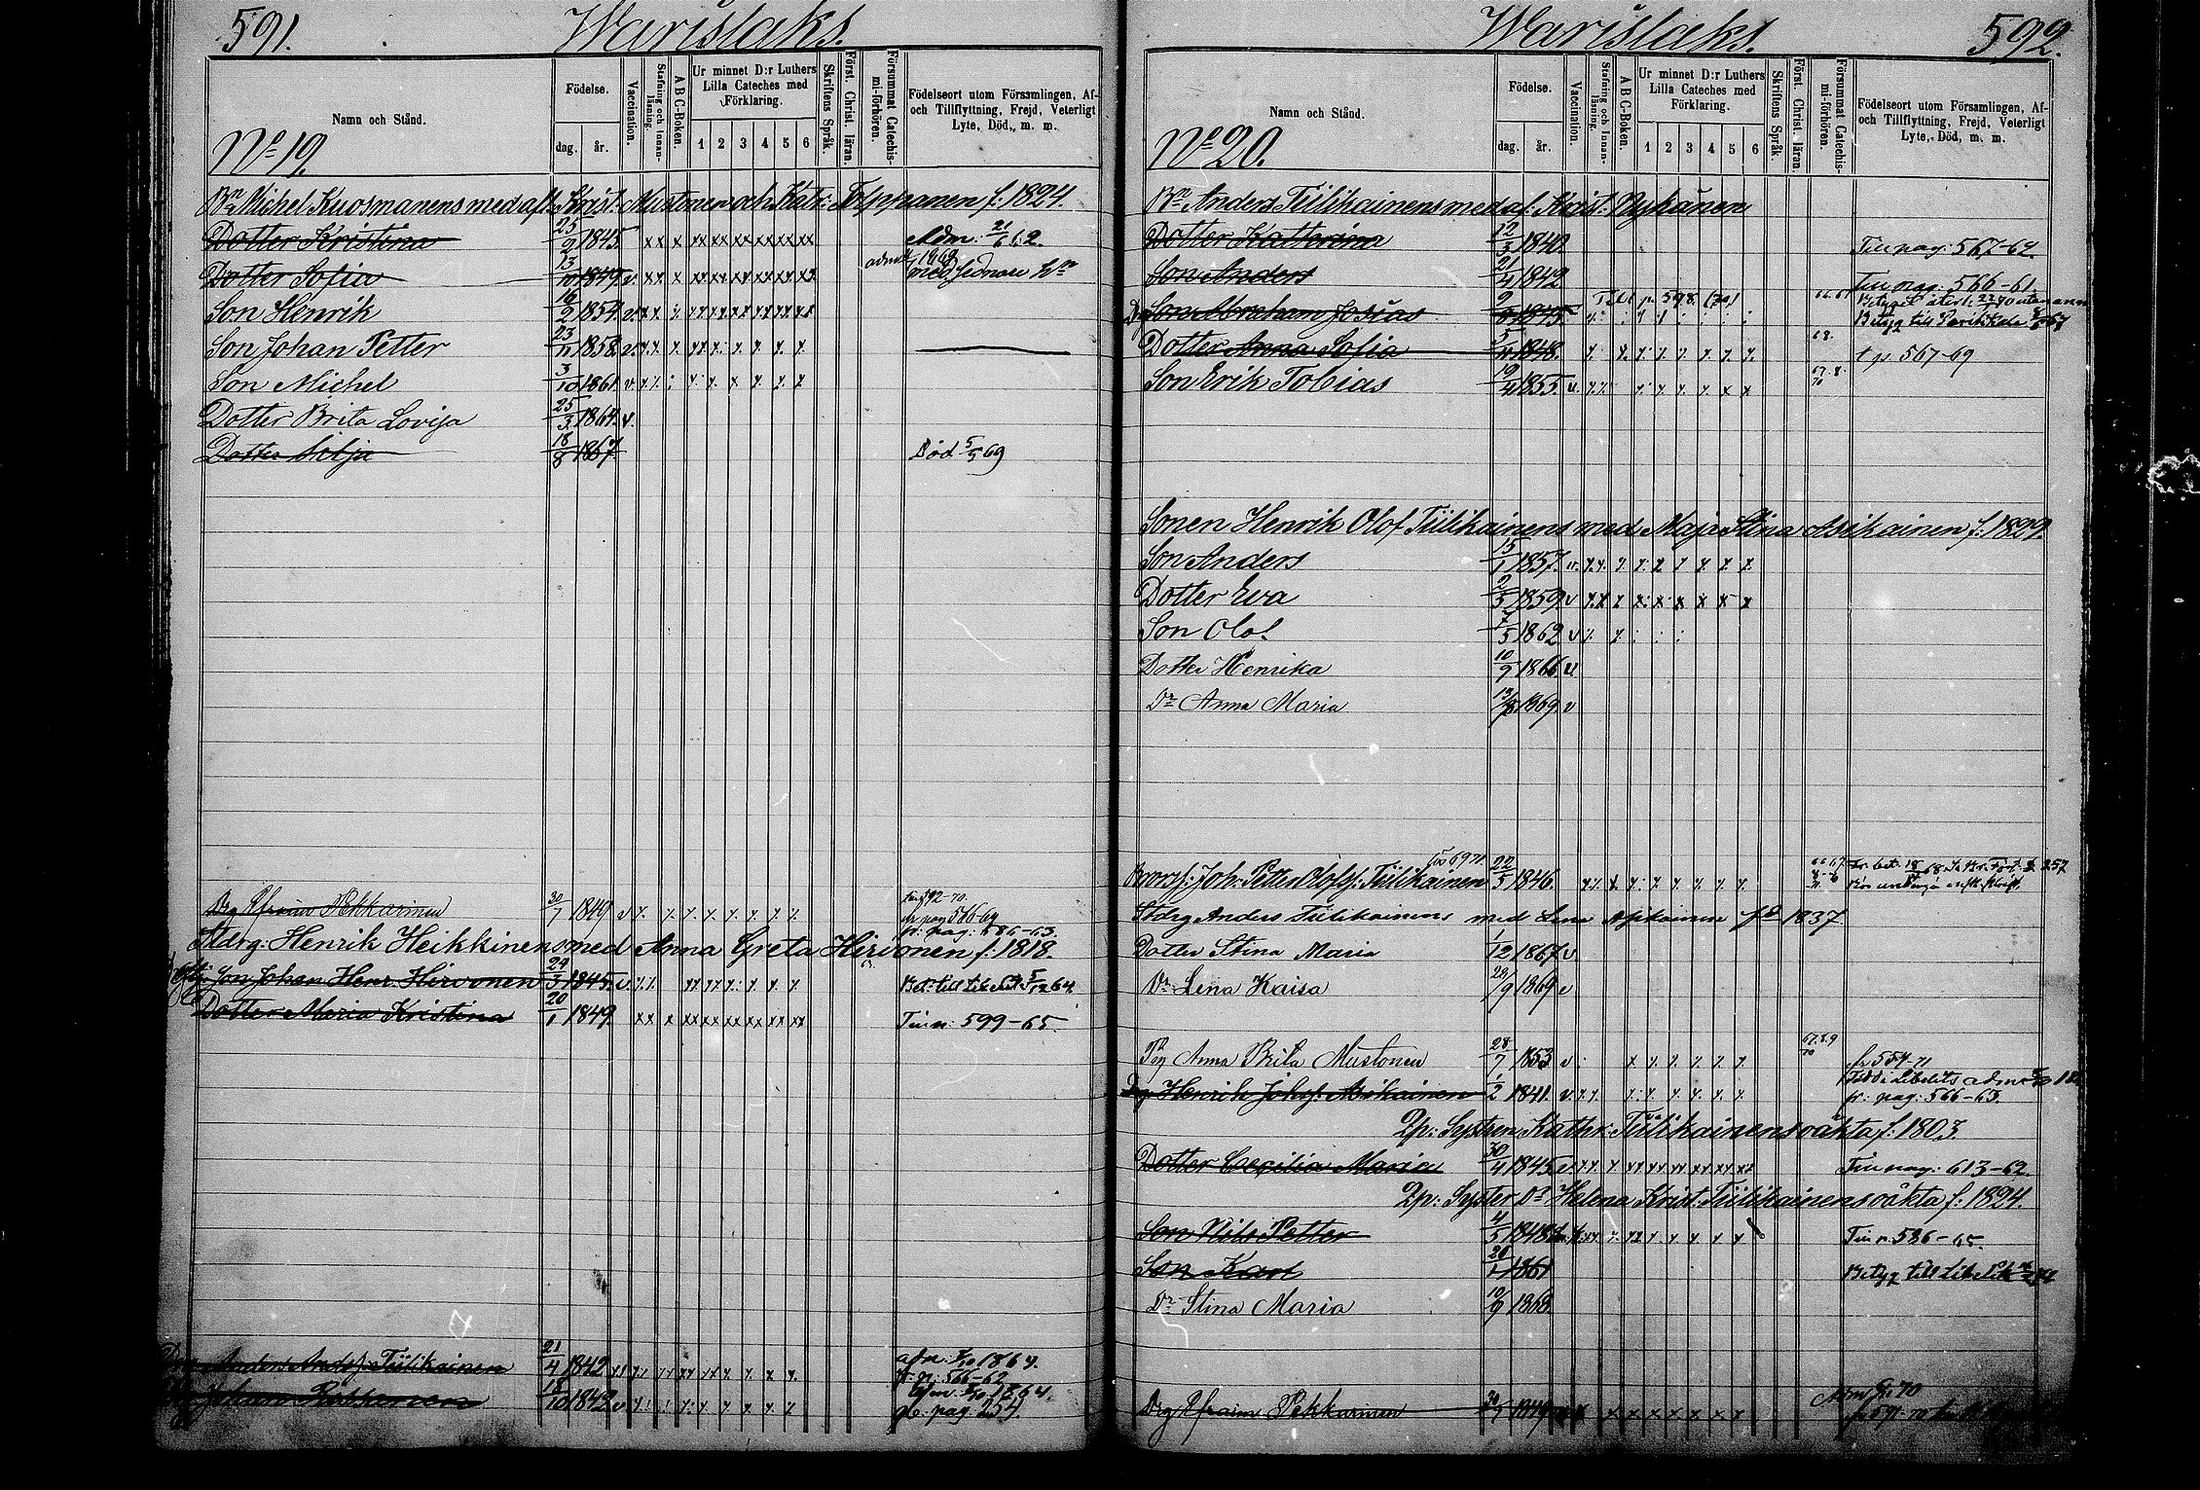 591. Warislaks.
Namn och Stånd.
Födelse.
dag. år.
Vaccination.
Stafning och Innanläsning.
A B C-Boken.
Ur minnet D:r Luthers Lilla Cateches med Förklaring.
1 2 3 4 5 6
Skriftens Språk.
Först. Christ. läran.
Försummat Catechismi-förhören.
Födelseort utom Församlingen, Af- och Tillflyttning, Frejd, Veterligt Lyte, Död, m. m.
No 19.
Bn Michel Kuosmanens med afl. Krist. Mustonen och Katr. Toppanen f. 1824.
Dotter Kristina 23/9 1845. Adm. 21/6 62.
Dotter Sofia 13/10 1849. v.
Son Henrik 16/2 1854. v.
Son Johan Petter 23/11 1858. v.
Son Michel 3/10 1861. v.
Dotter Brita Lovisa 25/3 1864. v.
Dotter Silja 18/8 1867. Död 5/5 69
Drg Efraim Pekkarinen 30/7 1849 v
Stdrg: Henrik Heikkinens med Anna Greta Hirvonen f. 1818.
Son Johan Henr. Hirvonen 24/3 1845. v. Bet. till Libelits 5/12 64.
Dotter Maria Kristina 20/1 1849. Tin n: 599-65.
Anders Andsf. Tiilikainen 21/4 1842 adm. 1864.
p: 566-62
Johan 18/10 1842 v 1864.
pag. 254.
592. Warislaks.
Namn och Stånd.
Födelse.
dag. år.
Vaccination.
Stafning och Innanläsning.
A B C-Boken.
Ur minnet D:r Luthers Lilla Cateches med Förklaring.
1 2 3 4 5 6
Skriftens Språk.
Först. Christ. läran.
Försummat Catechismi-förhören.
Födelseort utom Församlingen, Af- och Tillflyttning, Frejd, Veterligt Lyte, Död, m. m.
No 20.
Bn Anders Tiilikainens med af. Krist. Nykänen
Dotter Katterina 12/3 1840. Tin pag: 567-62.
Son Anders 21/4 1842 Tin pag: 566-61.
Son Abraham Josias 1845. Betyg till Parikkala
Dotter Anna Sofia 5/11 1848. 68. t p. 567-69
Son Erik Tobias 19/4 1855. v. 67.8. 70
Sonen Henrik Olof Tiilikainens med Maja Stina Asikainen f. 1829.
Son Anders 15/1 1857. v.
Dotter Eva 2/5 1859. v
Son Olof 7/5 1862 v
Dotter Henrika 10/9 1866 v
Dr Anna Maria 13/8 1869. v
Brorsf: Joh: Petter Olofsf: Tiilikainen 22/5 1846.
Stdrg Anders Tiilikainens med Lena Asikainen fd 1837
Dotter Stina Maria 1/12 1867 v
Dr Lena Kaisa 29/9 1869 v
Pig Anna Brita Mustonen 28/7 1853 v 67.8.9 70 fr. 554-71
Född i Libelits adm.
Henrik Johsf. Asikainen 1/2 1841. v. fr: pag: 566-63.
Systren Kathr: Tiilikainens oäkta f: 1803.
Dotter Caecilia Maria 30/4 1845. v. Tin pag: 613-62.
Syster Dr Helena Krist: Tiilikainens oäkta f: 1824.
Son Nils Petter 4/5 1848 Tin n. 586-65.
Son Karl 1861 Betyg till Libelits
Dr Stina Maria 10/9 1868
Drg Efraim Pekkarinen 1849